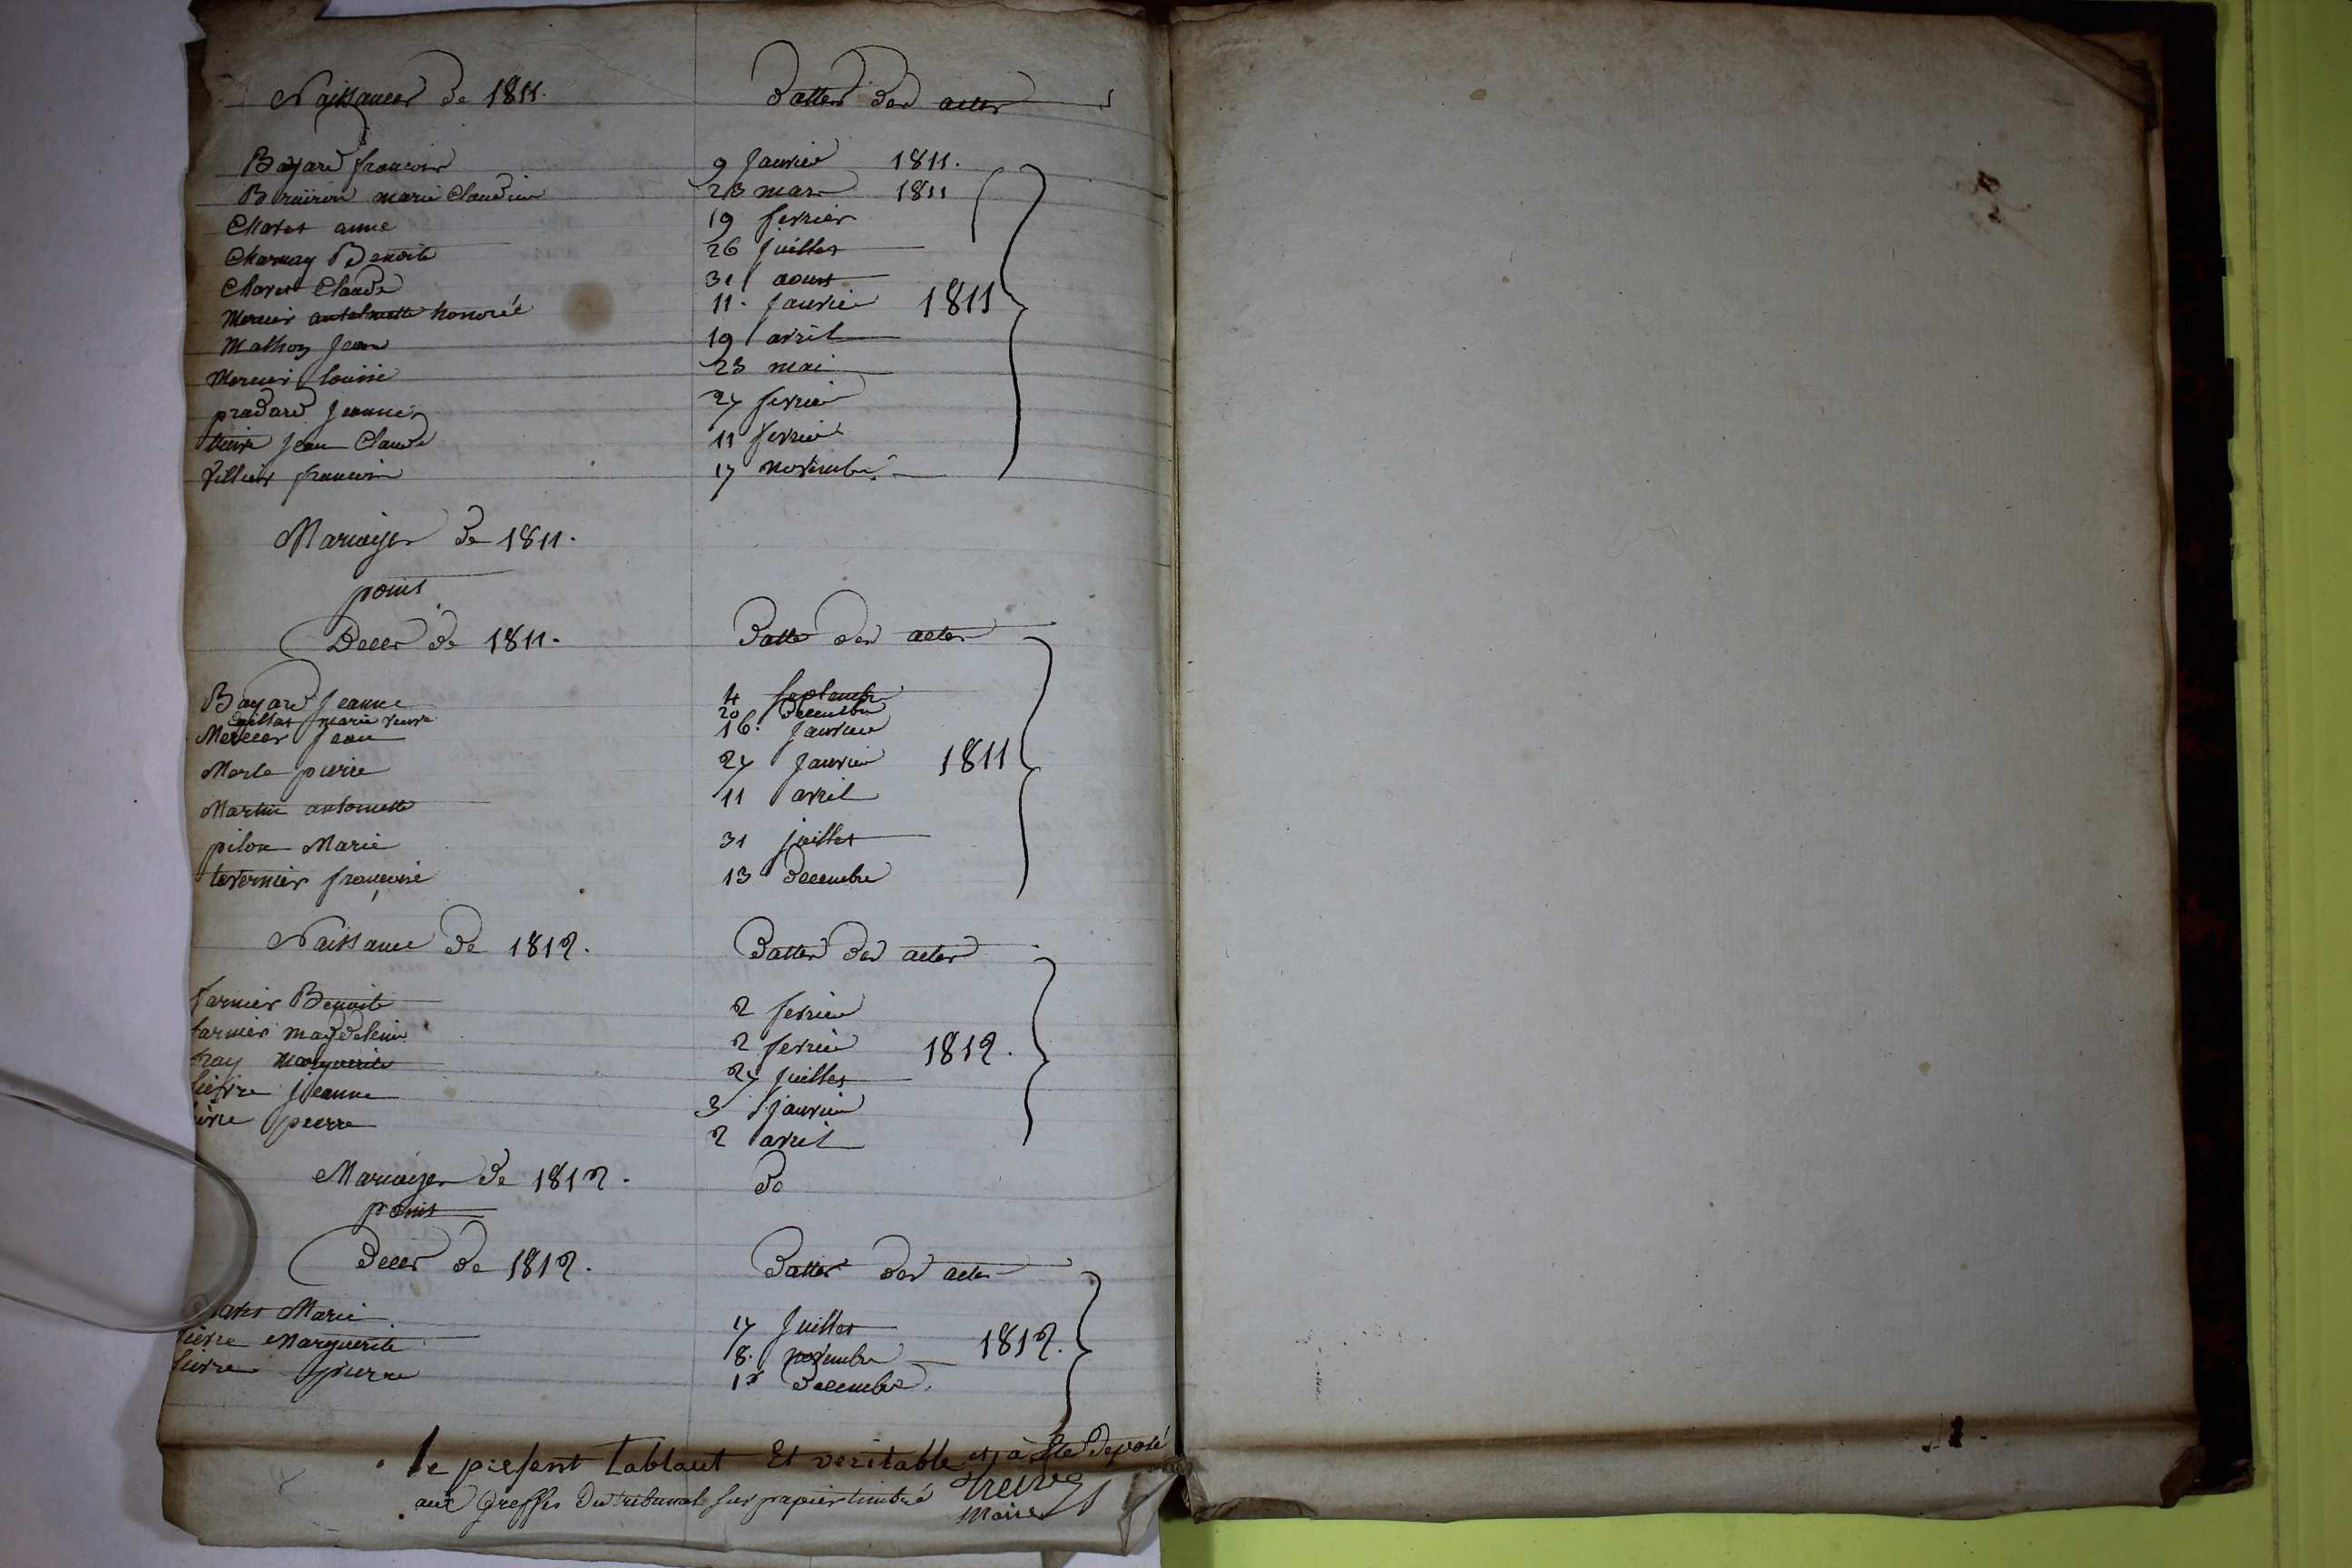 Naissances de 1811. Dattes des actes
Bayard francois 9 Janvier 1811.
marie Claudine 23 mars 1811
Chavet anne 19 fevrier
Charnay Benoite 26 Juillet
Chavet Claude 31 aoust
Mercier antoinette honorée 11. Janvier 1811
Mathon Jean 19 avril
Mercier louise 23 mai
pradard Jeanne 27 fevrier
Jean Claude 11 fevrier
Villier francois 17 novembre.
Mariages de 1811.
point
Deces de 1811. Datte des actes
Bayard Jeanne 4 septembre
marie veuve 20 decembre
Mercier Jean 16. Janvier
Merle pierre 27 Janvier 1811
Martin antoinette 11 avril
pilon Marie 31 juillet
tavernier françoise 13 decembre
Naissance de 1812. Dattes des actes
farnier Benoite 2 fevrier
farnier magdeleine 2 fevrier 1812.
fray marguerite 27 Juillet
Jeanne 3 Janvier
pierre 2 avril
Mariages de 1812. do
point
deces de 1812. Dattes des actes
Marie 17 Juillet
Marguerite 8. novembre 1812.
pierre 1r decembre.
le present tablaut Et veritable et à Ete deposé
aux Greffes du tribunal sur papier timbré Treve
Maire